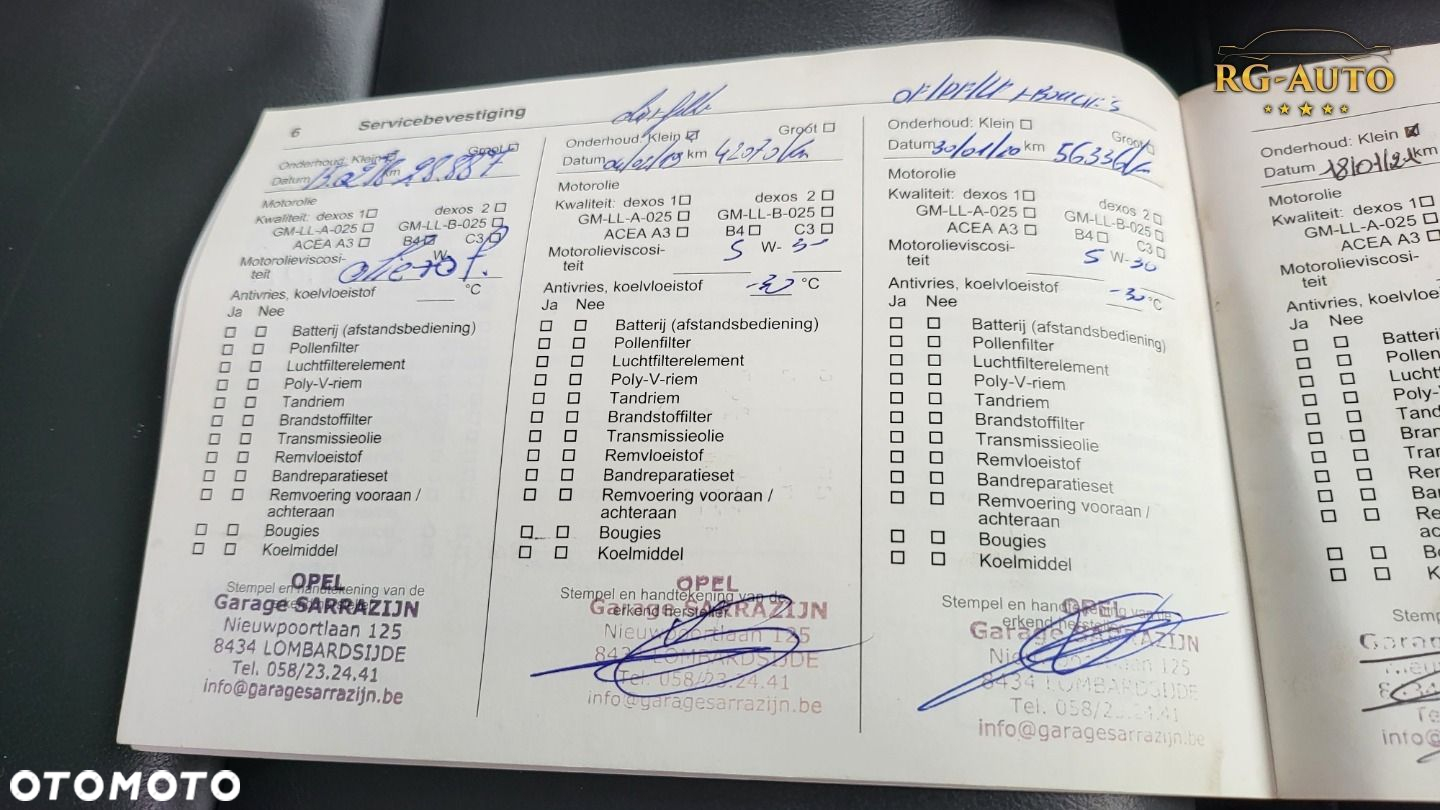 RG-AUTO
6 Servicebevestiging
Onderhoud: Klein Groot
Datum 13.02/18 km 28.887
Motorolie
Kwaliteit: dexos 1 dexos 2
GM-LL-A-025 GM-LL-B-025
ACEA A3 B4 C3
Motorolieviscosi-
teit W-
Antivries, koelvloeistof °C
Ja Nee
Batterij (afstandsbediening)
Pollenfilter
Luchtfilterelement
Poly-V-riem
Tandriem
Brandstoffilter
Transmissieolie
Remvloeistof
Bandreparatieset
Remvoering vooraan /
achteraan
Bougies
Koelmiddel
Stempel en handtekening van de
OPEL
Garage SARRAZIJN
Nieuwpoortlaan 125
8434 LOMBARDSIJDE
Tel. 058/23.24.41
info@garagesarrazijn.be
Onderhoud: Klein Groot
Datum 04/02/19 km 42070 km
Motorolie
Kwaliteit: dexos 1 dexos 2
GM-LL-A-025 GM-LL-B-025
ACEA A3 B4 C3
Motorolieviscosi-
teit 5 W- 30
Antivries, koelvloeistof -30 °C
Ja Nee
Batterij (afstandsbediening)
Pollenfilter
Luchtfilterelement
Poly-V-riem
Tandriem
Brandstoffilter
Transmissieolie
Remvloeistof
Bandreparatieset
Remvoering vooraan /
achteraan
Bougies
Koelmiddel
Stempel en handtekening van de
erkend hersteller
OPEL
Garage SARRAZIJN
Nieuwpoortlaan 125
8434 LOMBARDSIJDE
Tel. 058/23.24.41
info@garagesarrazijn.be
Onderhoud: Klein Groot
Datum 30/01/20 km 56336 km
Motorolie
Kwaliteit: dexos 1 dexos 2
GM-LL-A-025 GM-LL-B-025
ACEA A3 B4 C3
Motorolieviscosi-
teit 5 W- 30
Antivries, koelvloeistof -30 °C
Ja Nee
Batterij (afstandsbediening)
Pollenfilter
Luchtfilterelement
Poly-V-riem
Tandriem
Brandstoffilter
Transmissieolie
Remvloeistof
Bandreparatieset
Remvoering vooraan /
achteraan
Bougies
Koelmiddel
Stempel en handtekening van de
erkend hersteller
OPEL
Garage SARRAZIJN
Nieuwpoortlaan 125
8434 LOMBARDSIJDE
Tel. 058/23.24.41
info@garagesarrazijn.be
Onderhoud: Klein
Datum 18/01/21 km
Motorolie
Kwaliteit: dexos 1
GM-LL-A-025
ACEA A3
Motorolieviscosi-
teit
Antivries, koelvloe
Ja Nee
Batteri
Pollen
Lucht
Poly-
Tand
Bran
Tra
Re
Ba
Re
ac
B
K
Stemp
OTOMOTO